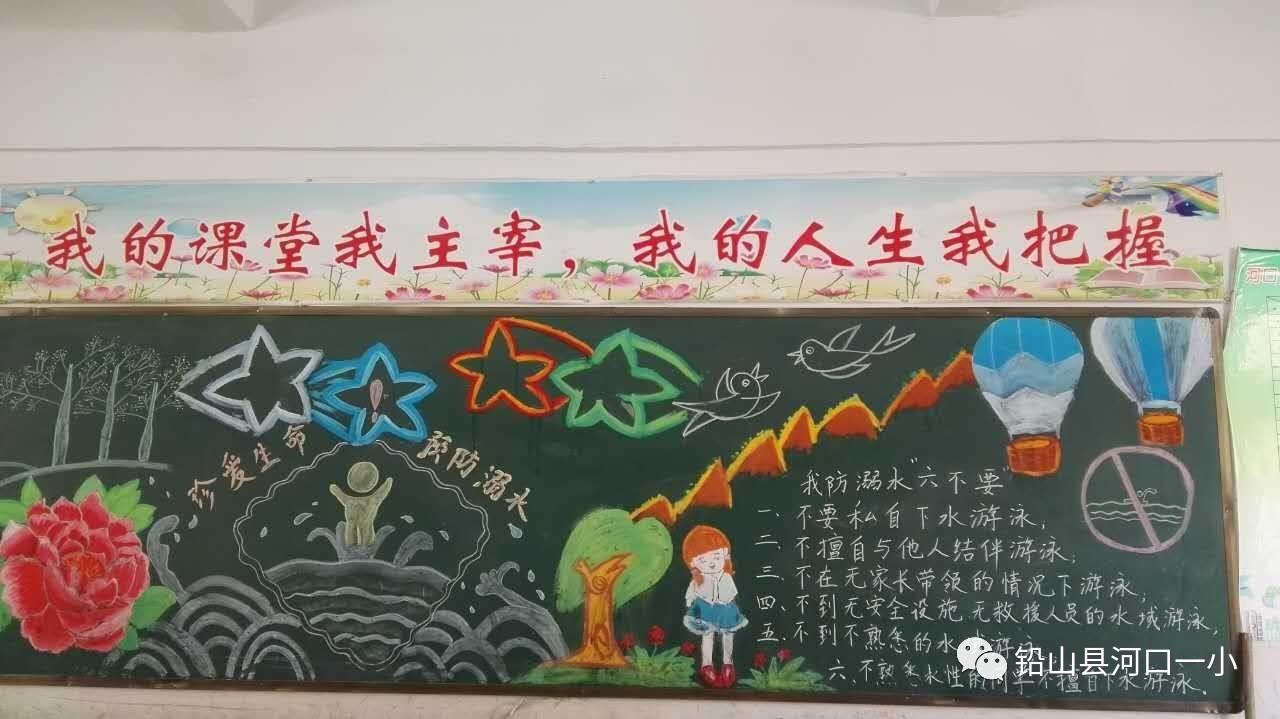 我的课堂我主宰，我的人生我把握
河口
珍爱生命
预防溺水
我防溺水“六不要”
一、不要私自下水游泳，
二、不擅自与他人结伴游泳，
三、不在无家长带领的情况下游泳，
四、不到无安全设施、无救援人员的水域游泳，
五、不到不熟悉的水 游泳
六、不熟悉水性的 不擅自下水游泳.
铅山县河口一小